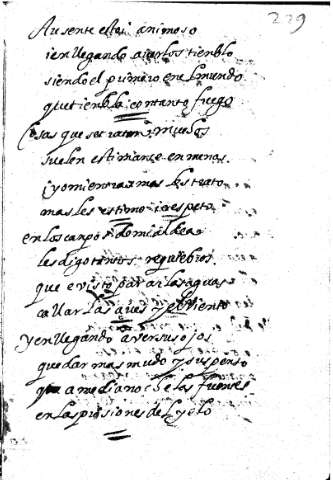 229
Ausente estoi animoso
i en llegando a verlos tienblo
siendo el primero en el mundo
que tienbla con tanto fuego
Cosas que se tratan mucho
suelen estimarse en menos
i yo mientras mas los trato
mas los estimo i respeto
en los canpos de mi aldea
les digo tantos requiebros
que e visto parar las aguas
callar las aves y el viento
y en llegando a ver sus ojos
quedar mas mudo y suspenso
que a media noche las fuentes
en las prisiones del yelo